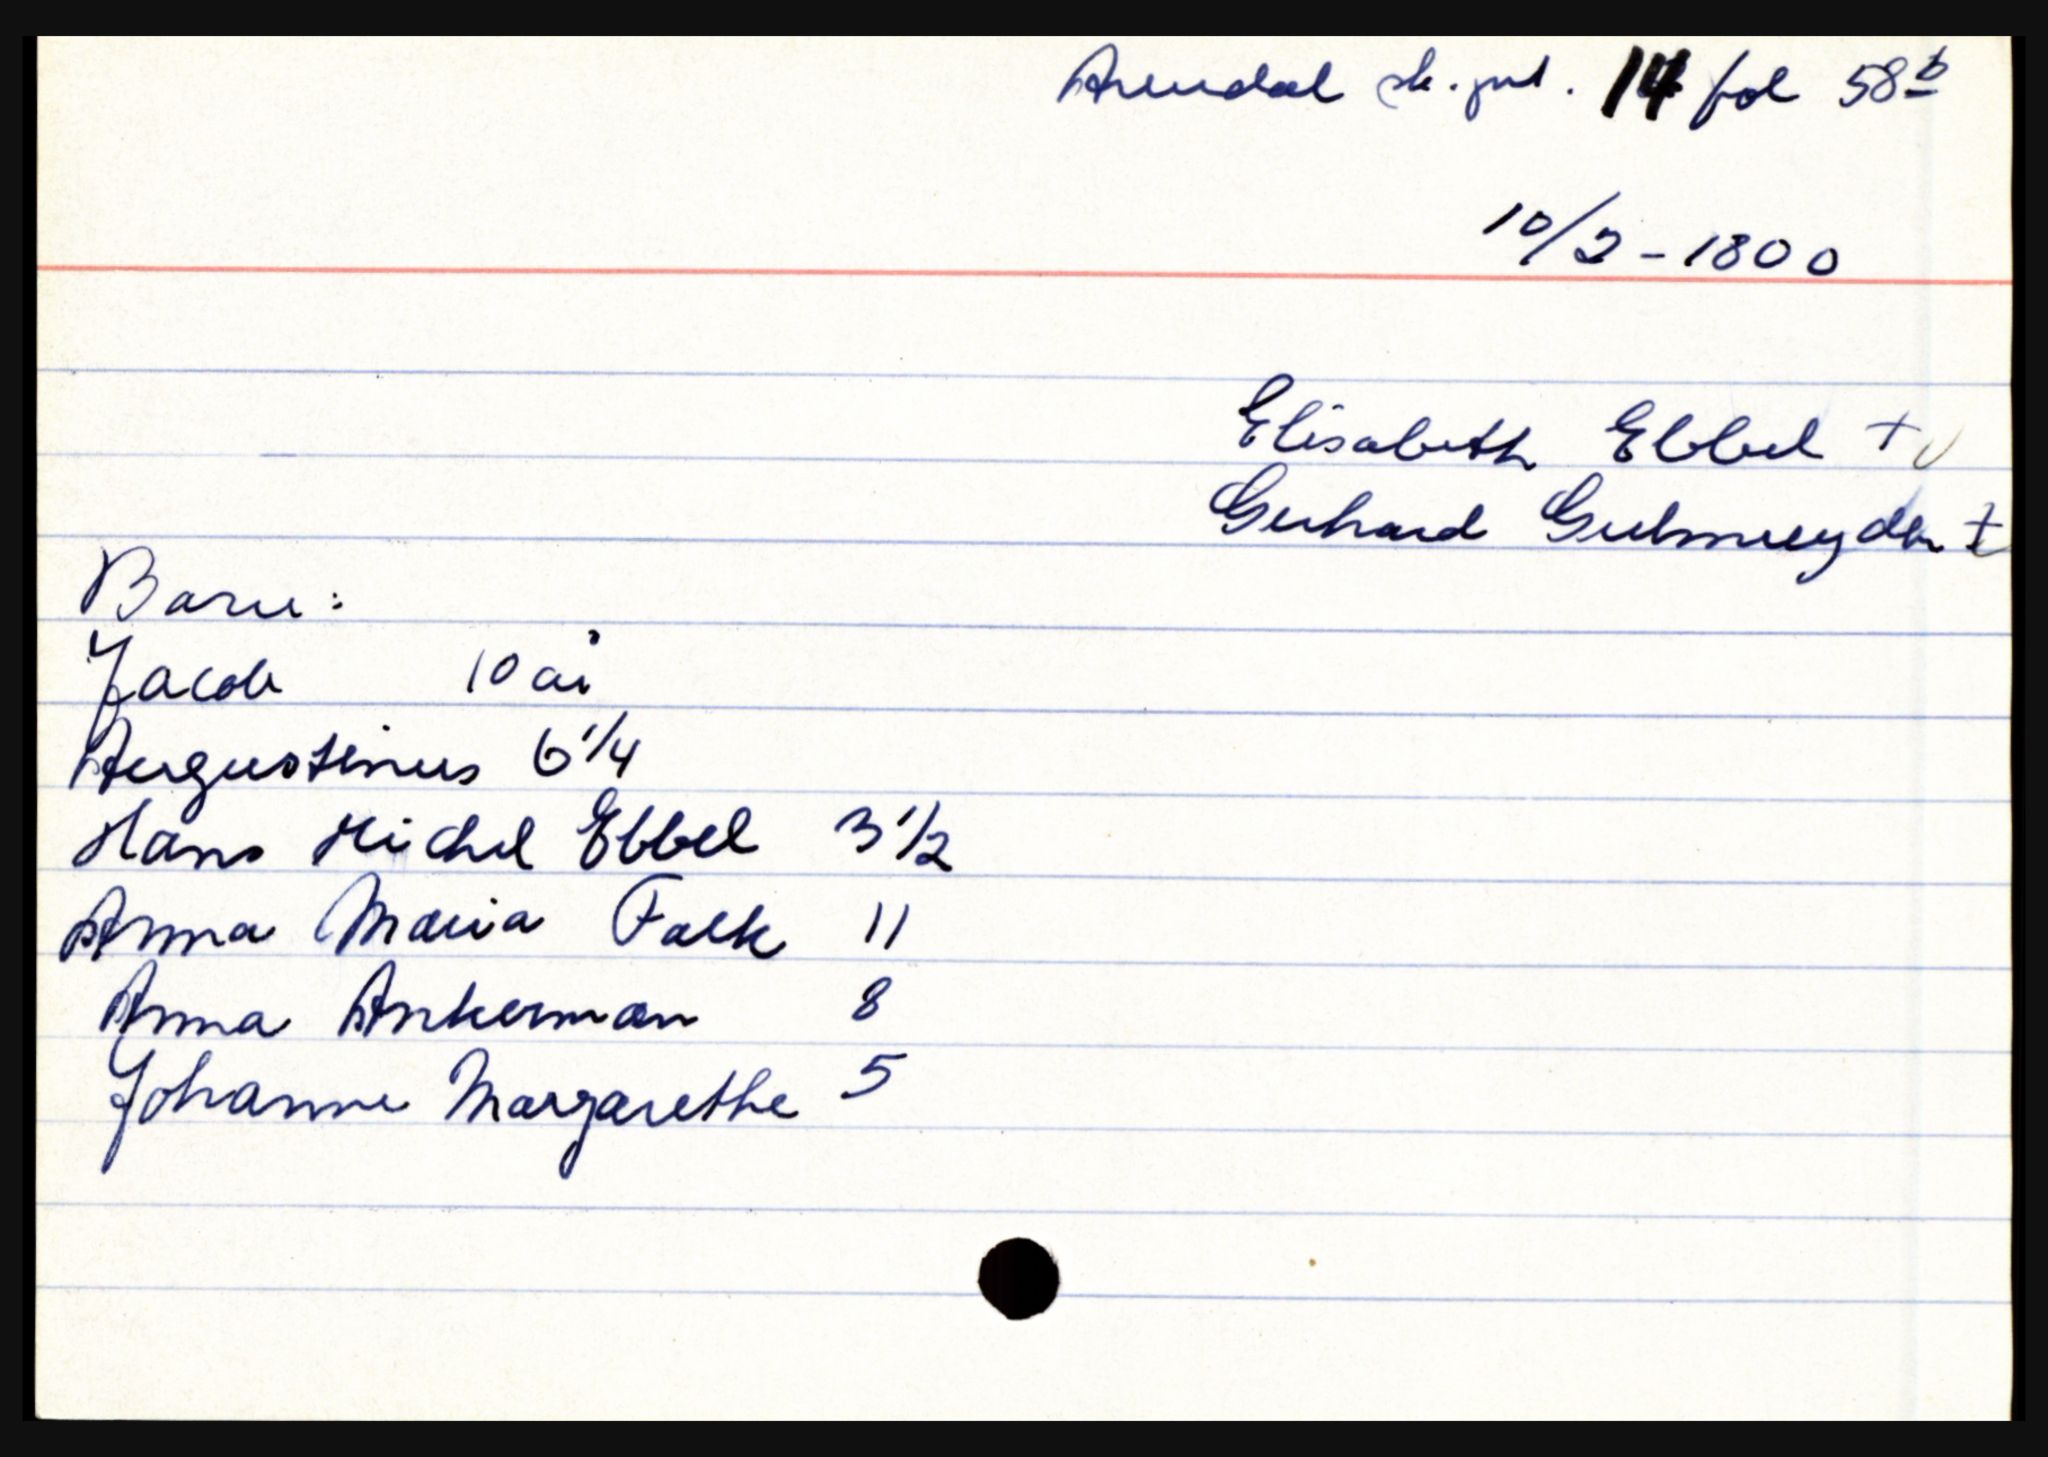 Arendal sk.prot. 14 fol 58 b
10/2 - 1800
Elisabeth Ebbel +
Gerhard Gulmeyden +
Barn:
Jacob 10 år
Augustinus 6 1/4
Hans Michel Ebbel 3 1/2
Anna Maria Falk 11
Anna Ankerman 8
Johanne Margarethe 5